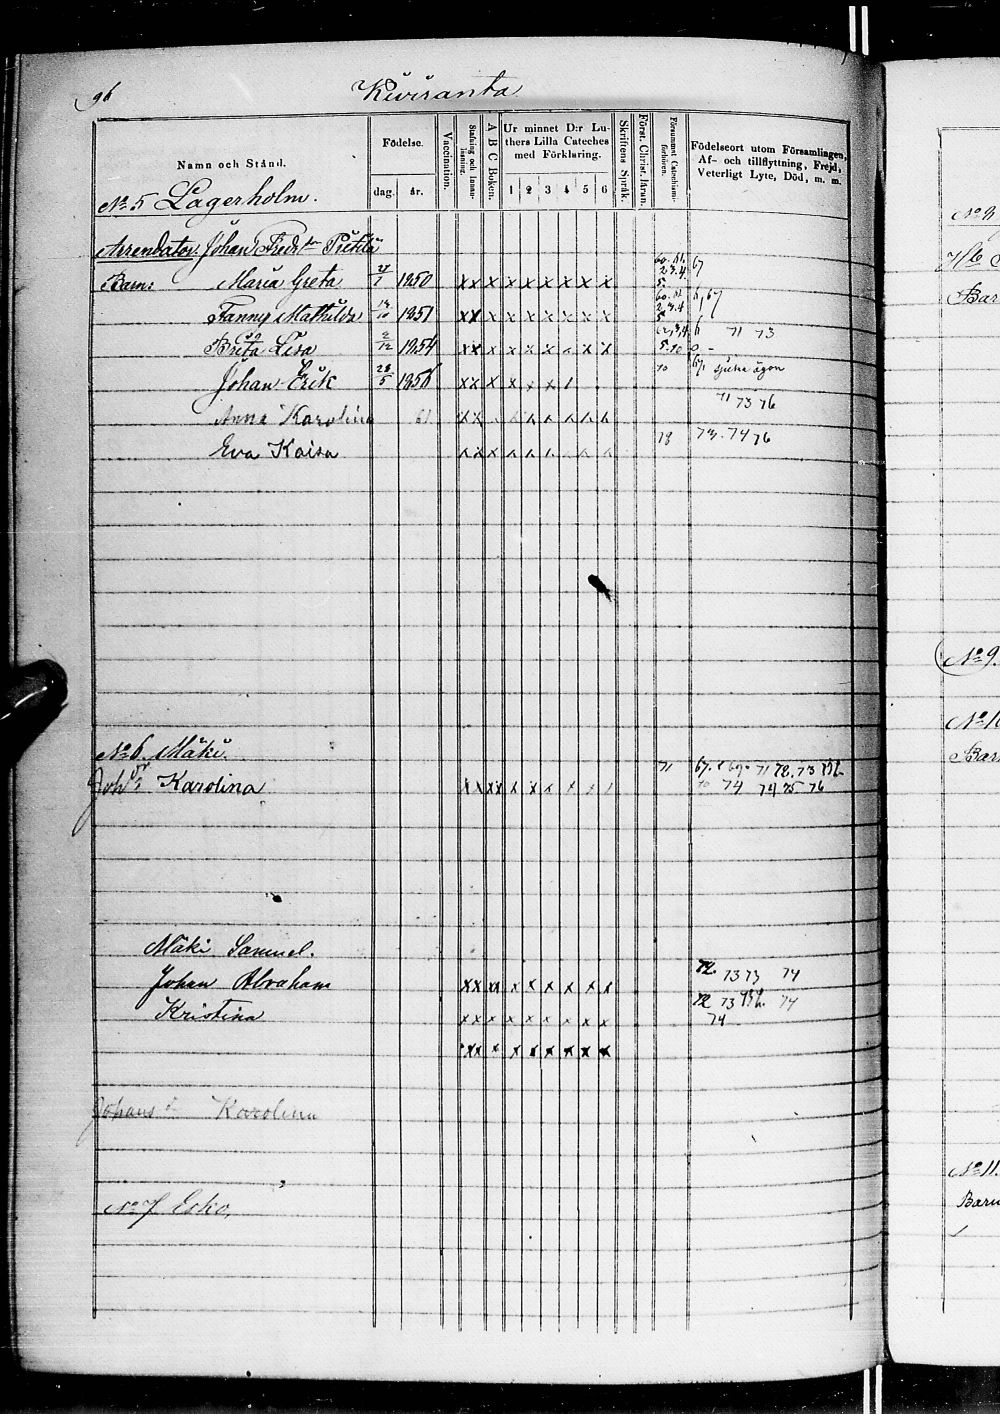 96
Kiviranta
Namn och Stånd.
Födelse.
dag.
år.
Vaccination.
Stafning och Innanläsning.
A B C Boken.
Ur minnet D:r Luthers Lilla Cateches med Förklaring.
1 2 3 4 5 6
Skriftens Språk.
Först. Christ. läran.
Försummat Catechismiförhören.
Födelseort utom Församlingen, Af- och tillflyttning, Frejd, Veterligt Lyte, Död, m. m.
No 5 Lagerholm.
Arrendator Johan Fredr:son Pietilä
Barn: Maria Greta 1850 x x x x x x x x x 67
Fanny Mathilda 1851 x x x x x x x x x 67
Brita Lisa 2/12 1854 x x x x x x x x 71 73
Johan Erik 28/5 1856 x x x x x x sjuka ögon
71 73 76
Anna Karolina 61
Eva Kaisa 73. 74 76
No 6. Mäki.
Joh. Karolina 71 72. 73
74 74 75 76
Mäki Samuel.
Johan Abraham x x x x x x x x x 72. 73 73 74
Kristina x x x x x x x x x 72 73 74
74
Johans Karolina
No 7 Esko.
No 9.
Barn
No 11.
Barn